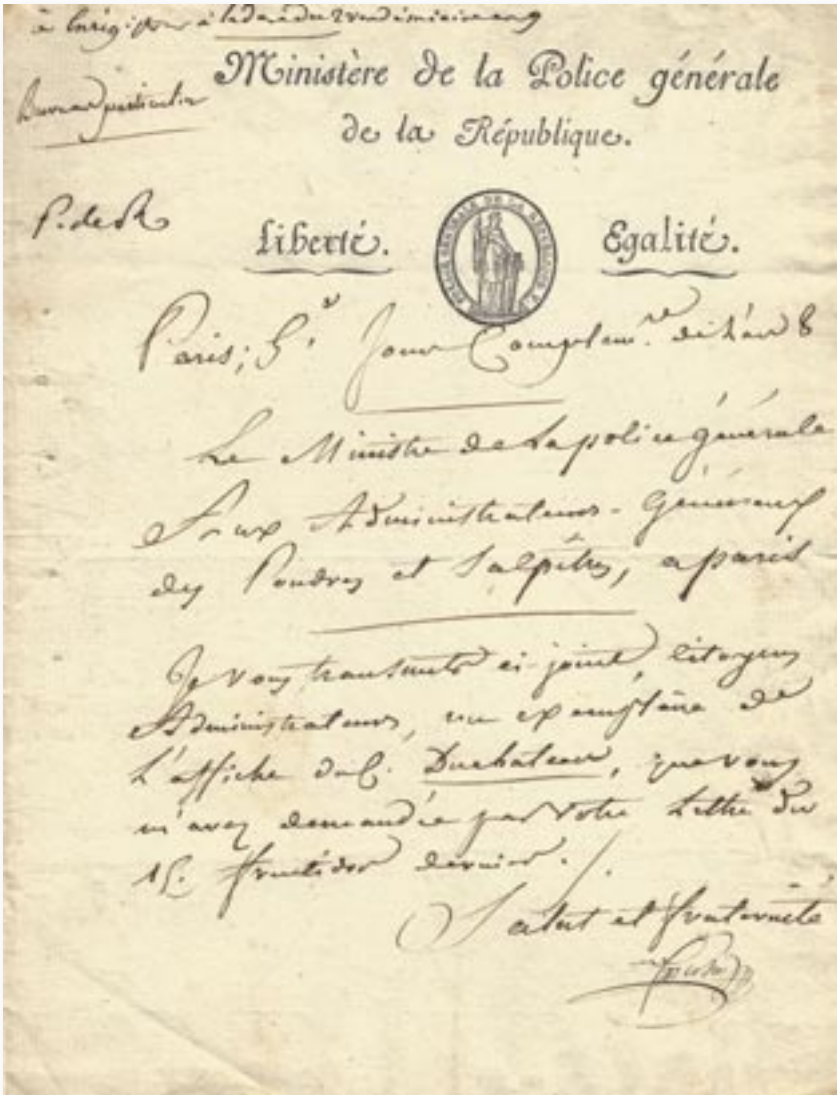 à la date du 2 vendémiaire an 9
Bureau particulier
Ministère de la Police générale
de la République.
P. de R
Liberté.
POLICE GÉNÉRALE DE LA RÉPUBLIQUE
Egalité.
Paris, 5.e Jour Complem.re de L'an 8
Le Ministre de La police générale
Aux Administrateurs-Généraux
des Poudres et Salpêtres, a paris
Je vous transmets ci-joint, citoyens
Administrateurs, un exemplaire de
L'affiche du C. Duchateau, que vous
m'avez demandée par votre Lettre du
15. fructidor dernier.
Salut et fraternité